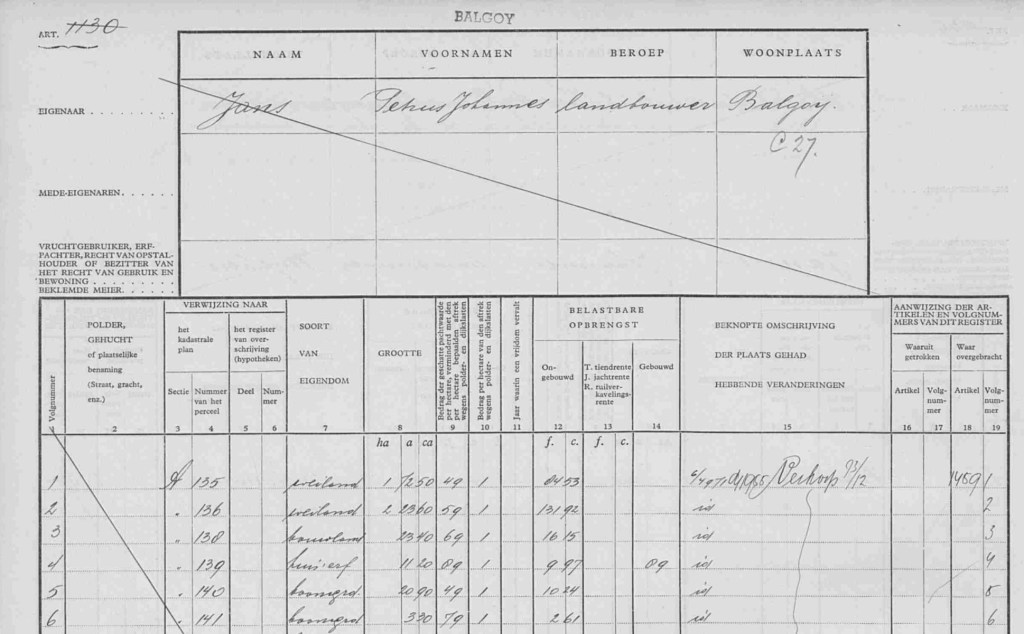 BALGOY
ART. 1130
NAAM VOORNAMEN BEROEP WOONPLAATS
EIGENAAR . . . . . . . . Jans Petrus Johannes landbouwer Balgoy.
C 27.
MEDE-EIGENAREN. . . . . .
VRUCHTGEBRUIKER, ERF-
PACHTER, RECHT VAN OPSTAL-
HOUDER OF BEZITTER VAN
HET RECHT VAN GEBRUIK EN
BEWONING . . . . . . . .
BEKLEMDE MEIER. . . . . .
Volgnummer
POLDER,
GEHUCHT
of plaatselijke
benaming
(Straat, gracht,
enz.)
VERWIJZING NAAR
het
kadastrale
plan
het register
van over-
schrijving
(hypotheken)
Sectie Nummer
van het
perceel
Deel Num-
mer
SOORT
VAN
EIGENDOM
GROOTTE
Bedrag der geschatte pachtwaarde
per hectare, verminderd met den
per hectare bepaalden aftrek
wegens polder- en dijkslasten
Bedrag per hectare van den aftrek
wegens polder- en dijkslasten
Jaar waarin een vrijdom vervalt
BELASTBARE
OPBRENGST
On-
gebouwd
T. tiendrente
J. jachtrente
R. ruilver-
kavelings-
rente
Gebouwd
BEKNOPTE OMSCHRIJVING
DER PLAATS GEHAD
HEBBENDE VERANDERINGEN
AANWIJZING DER AR-
TIKELEN EN VOLGNUM-
MERS VAN DIT REGISTER
Waaruit
getrokken
Waar
overgebracht
Artikel Volg-
num-
mer
Artikel Volg-
num-
mer
1 2 3 4 5 6 7 8 9 10 11 12 13 14 15 16 17 18 19
ha a ca f. c. f. c.
1 A 135 weiland 1 72 50 49 1 84 53 Verkoop 1459 1
2 „ 136 weiland 2 23 60 59 1 131 92 id 2
3 „ 138 bouwland 23 40 69 1 16 15 id 3
4 „ 139 huis erf 11 20 89 1 9 97 89 id 4
5 „ 140 boomgrd 20 90 49 1 10 24 id 5
6 „ 141 boomgrd 3 30 79 1 2 61 id 6